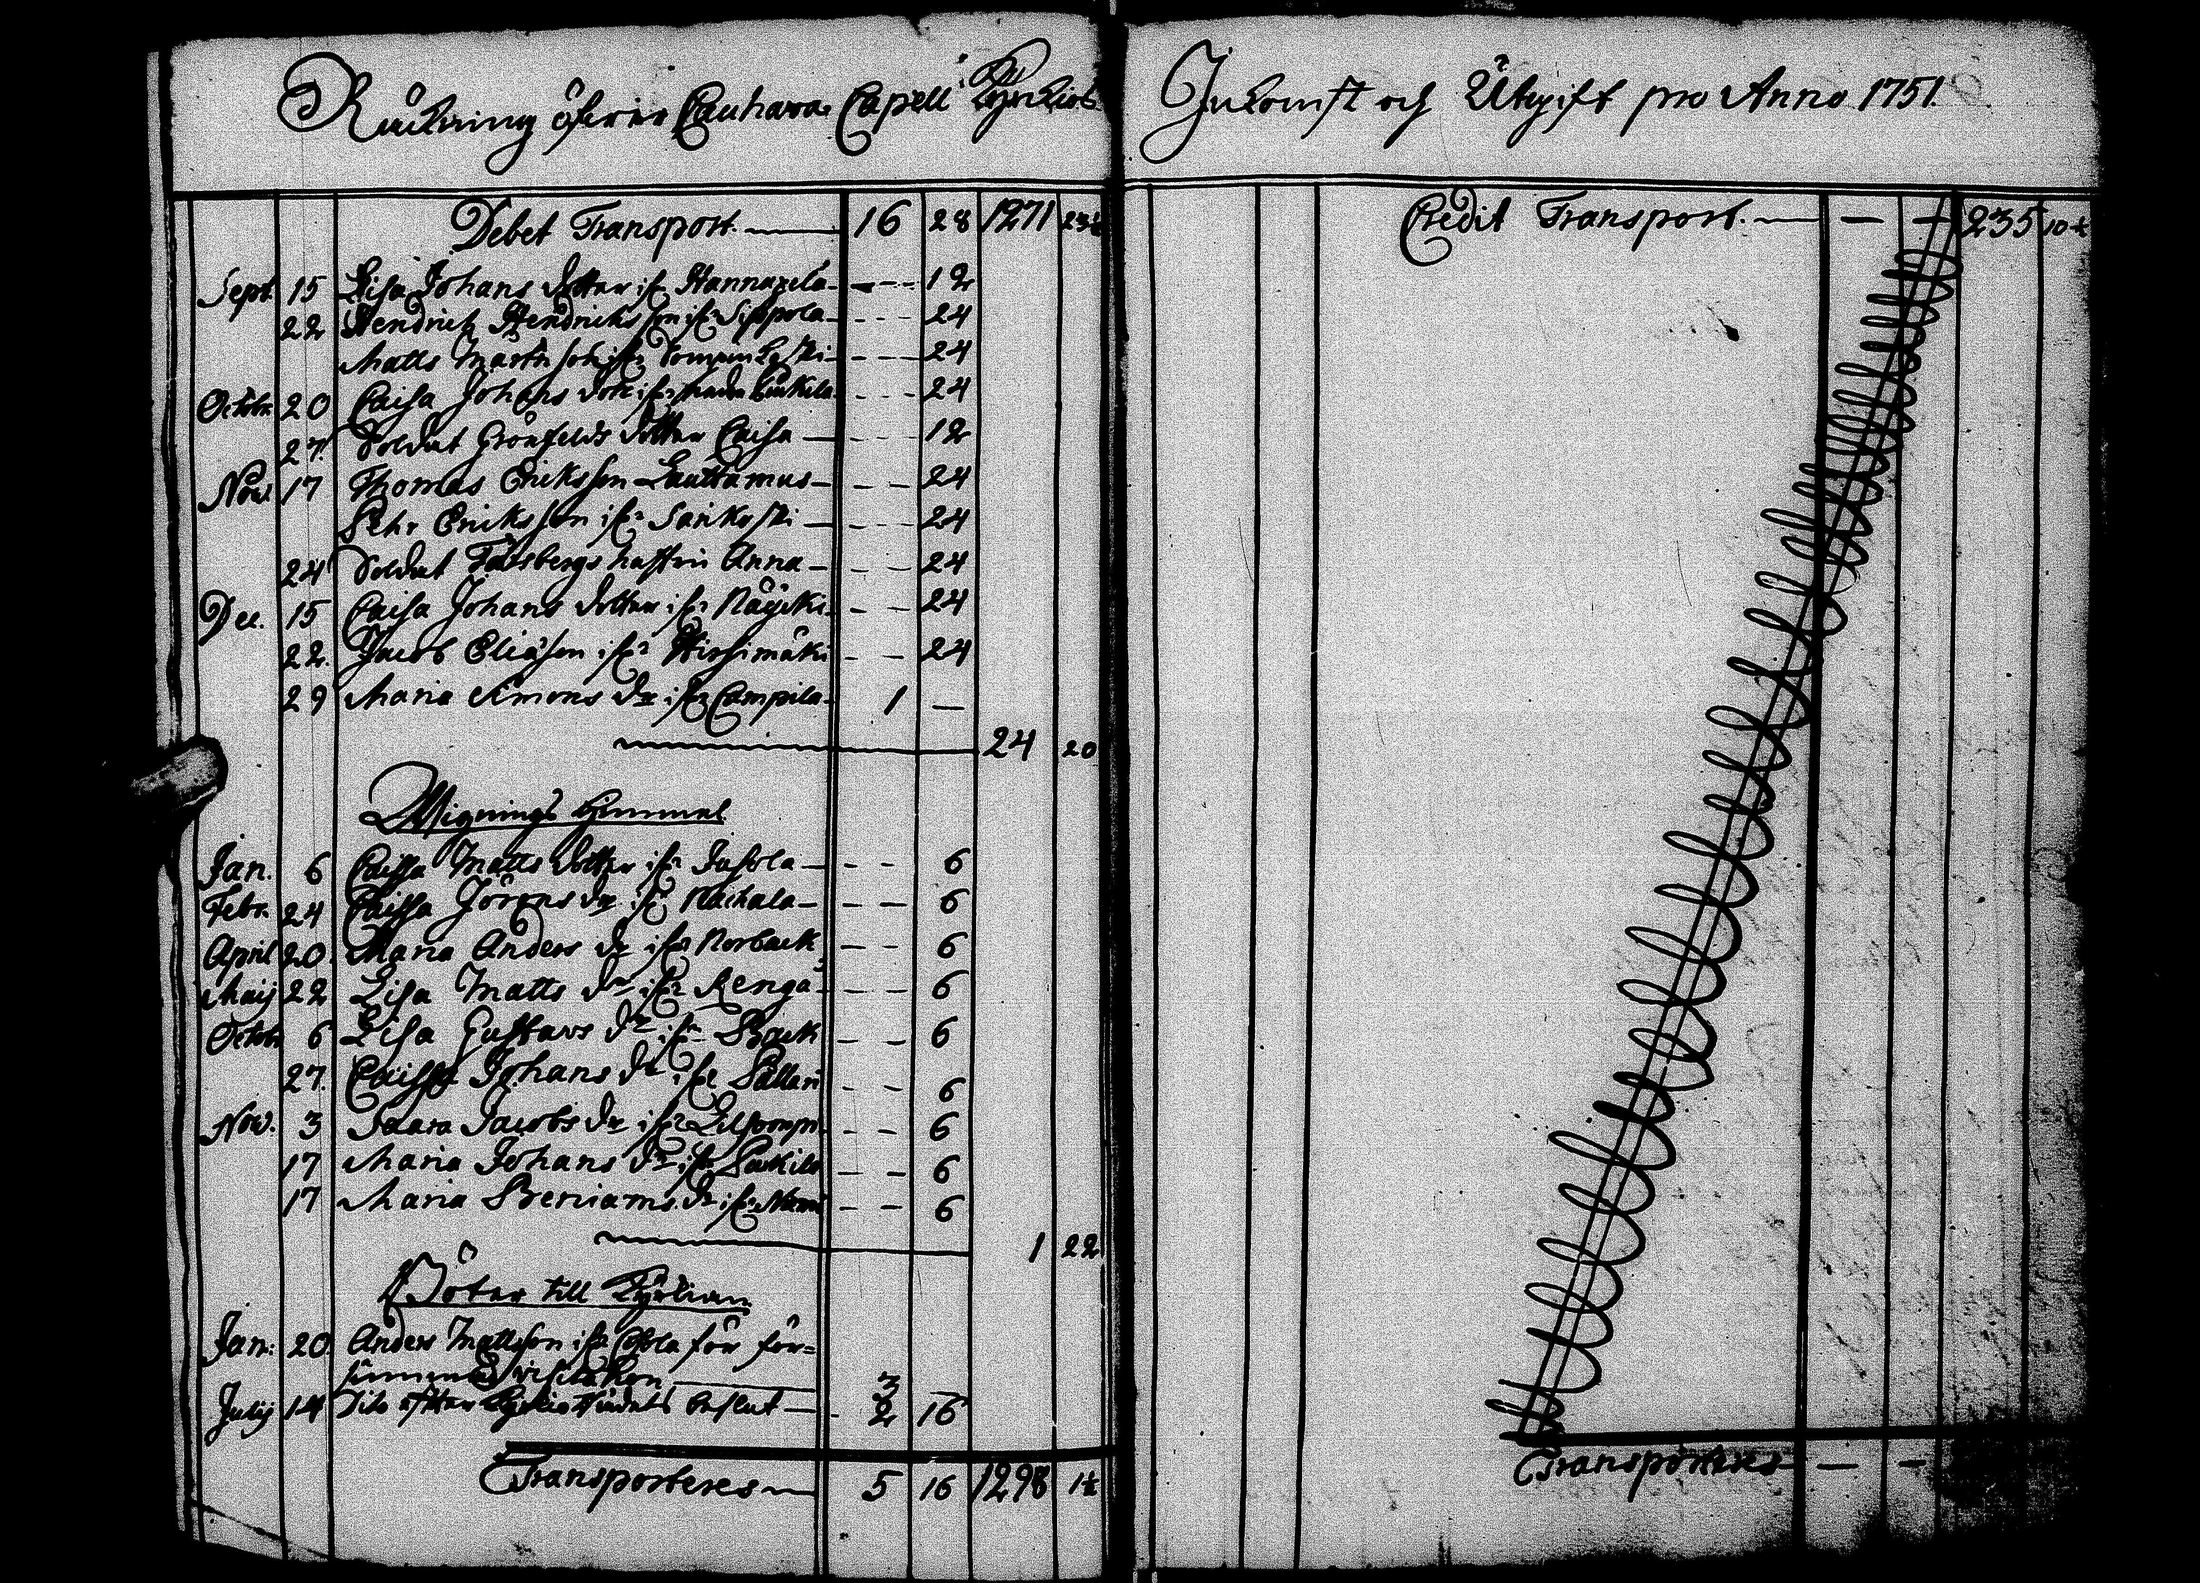 Räckning öfwer Cauhava Capell Kyrkios Inkomst och Utgift pro Anno 1751.
Debet Transport. 16 28 1271 23½
Sept. 15 Lisa Johans dotter ifr. Hannuxela - - - 12
22 Hendrich Hendrichsson ifr. Sippola - - - 24
Matts Martinson ifr. - - - 24
Octobr. 20 Caisa Johans dotr ifr. - - - 24
27. Soldat Grönfelds dotter Caisa - - - 12
Now. 17 Thomas Eriksson Lauttamus - - 24
Pehr Eriksson ifr. Sarikoski - - - 24
24 Soldat Falsbergs hustru Anna - - 24
Dec. 15 Caisa Johans dotter ifr. Näyki - - 24
22. Jacob Eliasson ifr. Hirsimäki - - 24
29 Maria Simons dr ifr. Campila 1 —
24 20
Wignings Himmel
Jan. 6 Caissa Matts dotter ifr. Jussola - - 6
Febr. 24 Caissa Jörans dr ifr. Rachala - - 6
April 20. Maria Anders dr ifr. Norback - - 6
Maij 22 Lisa Matts dr ifr. Renga - - 6
Octobr. 6 Lisa Gustavs dr ifr. Back - - 6
27. Caissa Johans dr ifr. Pallari - - 6
Now. 3 Saara Jacobs dr ifr. - - 6
17 Maria Johans dr ifr. - - 6
17 Maria Beniams dr ifr. - - 6
1 22
Böter till Kyrkian
Jan: 20 Anders Mattsson ifr. för för=
visitation 3 —
Julij 14 Dito efter Kyrkio Rådets beslut - 2 16
Transporteres 5 16 1298 1½
Credit Transport. — — 235 10½
Transporteres — —